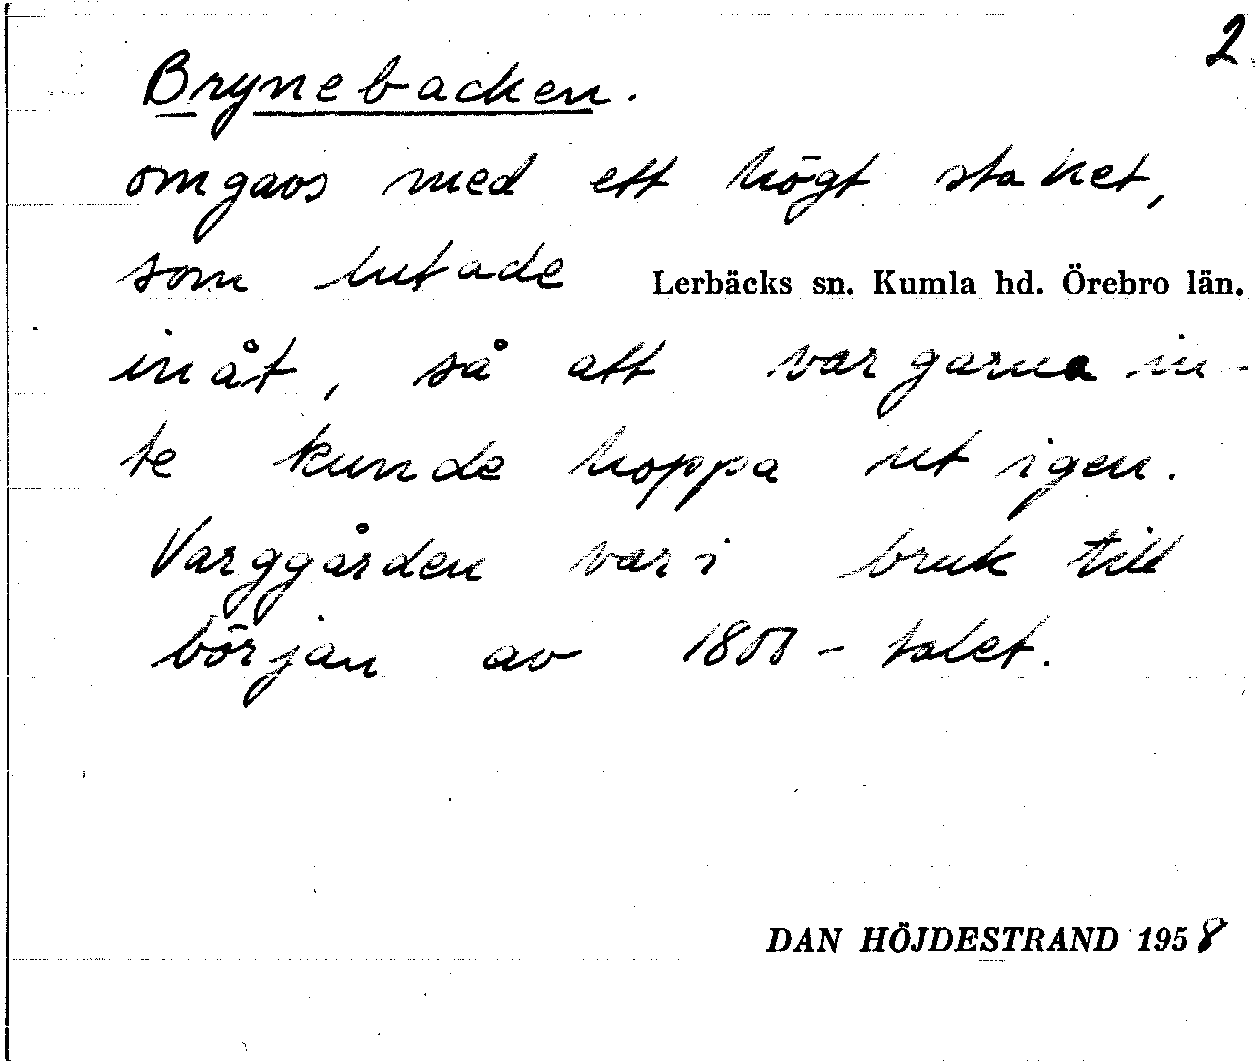 2
Brynebacken.
omgavs med ett högt staket,
som lutade
Lerbäcks sn. Kumla hd. Örebro län.
inåt, så att vargarna in-
te kunde hoppa ut igen.
Varggården var i bruk till
början av 1800-talet.
DAN HÖJDESTRAND 1958